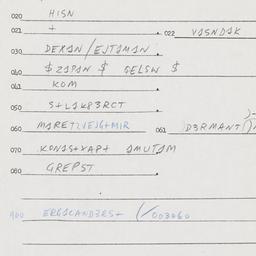 020 HISN
021 + 022 VASNDAK
030 DEXAN/EJTAMAN.
040 $ ZAPAN $ GELSW $
041 KOM
050 S+LAKP3RCT
060 MARETZVEJG+MIR 061 D3RMANT
070 KONAS+XAP+ AMUTAM
080 GREPST
900 ERGACAND3RS+ (/003060